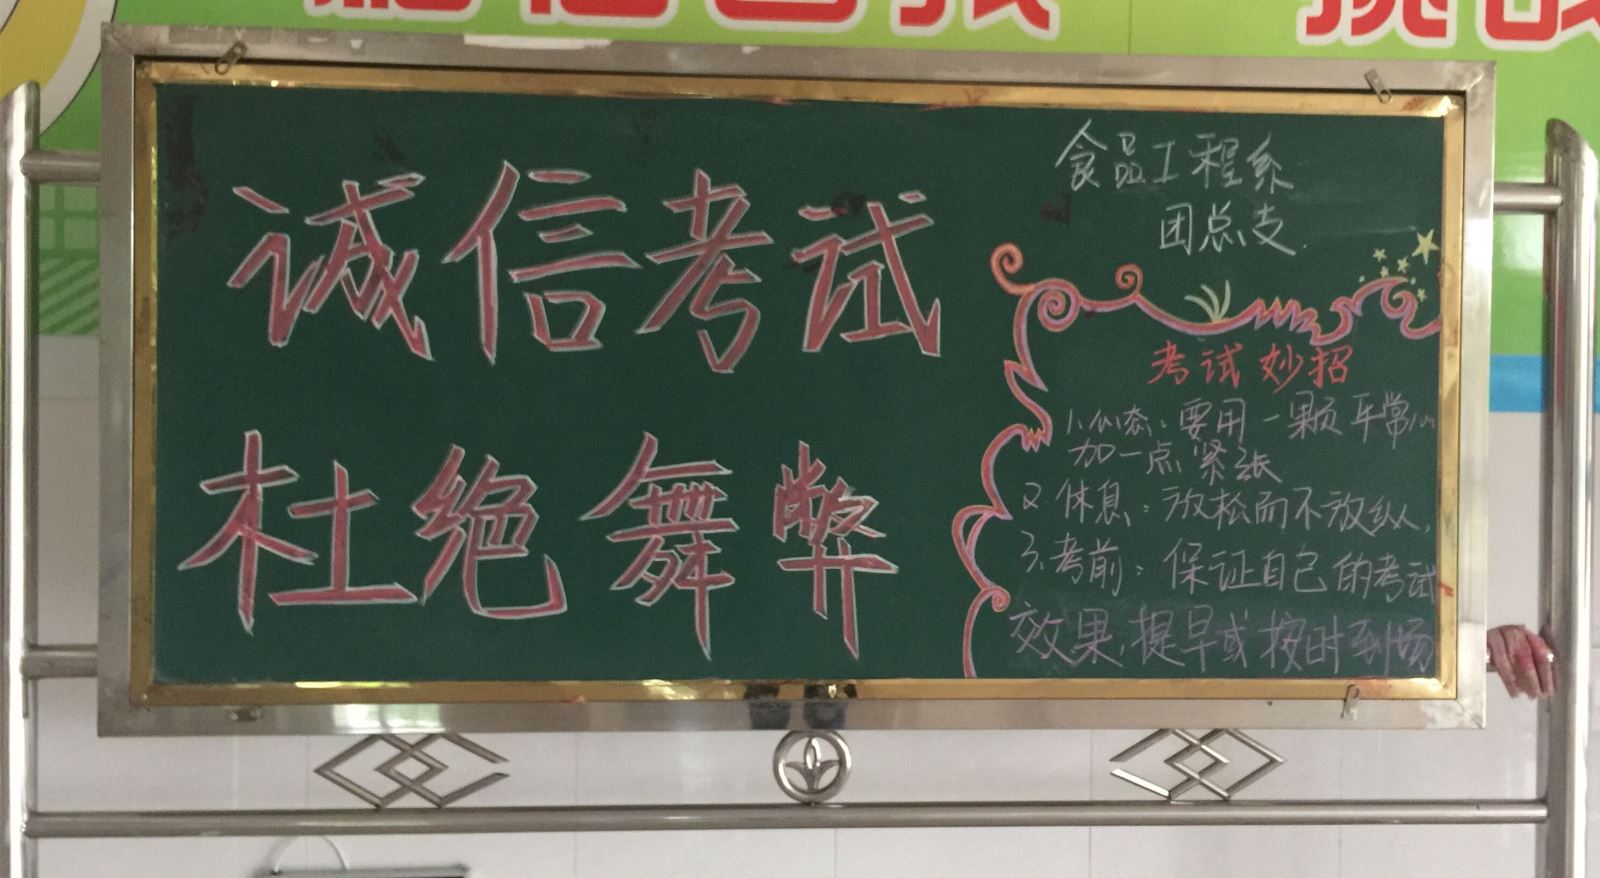 诚信考试
杜绝舞弊
食品工程系
团总支
考试妙招
1.心态:要用一颗平常心
加一点紧张
2.休息:放松而不放纵,
3.考前:保证自己的考试
效果,提早或按时到场